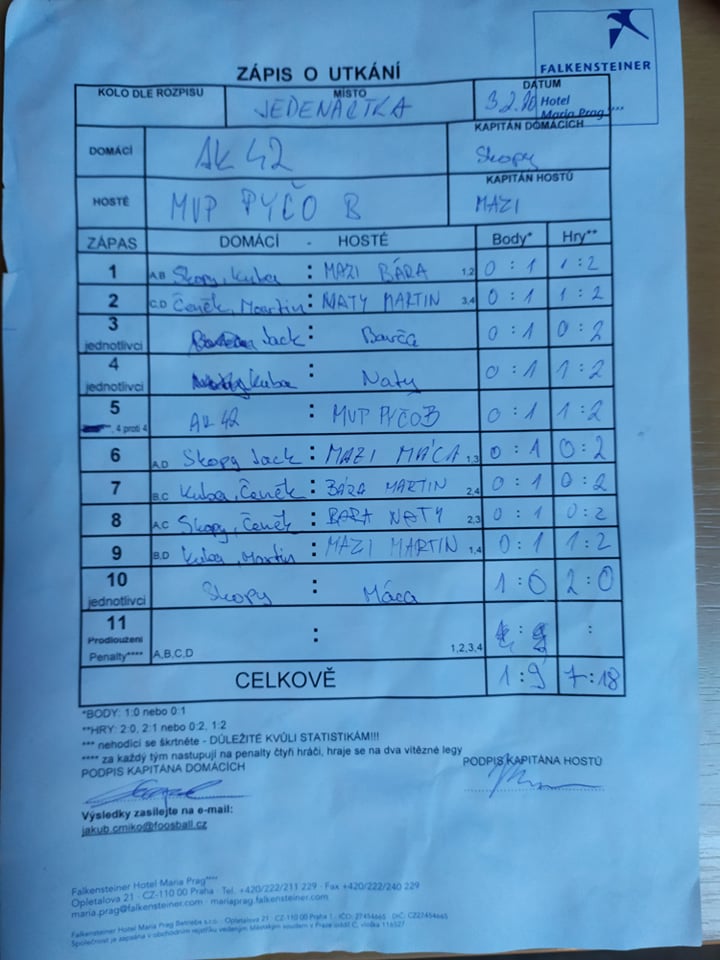 FALKENSTEINER
Hotel
Maria Prag****
ZÁPIS O UTKÁNÍ
KOLO DLE ROZPISU MÍSTO DATUM
JEDENÁCTKA 3.2.
DOMÁCÍ AK 42 KAPITÁN DOMÁCÍCH Skopy
HOSTÉ MVP PYČO B KAPITÁN HOSTŮ MAZI
ZÁPAS DOMÁCÍ - HOSTÉ Body* Hry**
1 A,B Skopy, Kuba : MAZI BÁRA 1,2 0 : 1 1 : 2
2 C,D Čeněk, Martin : NATY MARTIN 3,4 0 : 1 1 : 2
3 jednotlivci Jack : Barča 0 : 1 0 : 2
4 jednotlivci Kuba : Naty 0 : 1 1 : 2
5 , 4 proti 4 AK 42 : MVP PYČO B 0 : 1 1 : 2
6 A,D Skopy Jack : MAZI MÁCA 1,3 0 : 1 0 : 2
7 B,C Kuba, Čeněk : BÁRA MARTIN 2,4 0 : 1 0 : 2
8 A,C Skopy, Čeněk : BARA NATY 2,3 0 : 1 0 : 2
9 B,D Kuba, Martin : MAZI MARTIN 1,4 0 : 1 1 : 2
10 jednotlivci Skopy : Máca 1 : 0 2 : 0
11 Prodloužení Penalty**** A,B,C,D : 1,2,3,4 : :
CELKOVĚ 1 : 9 7 : 18
*BODY: 1:0 nebo 0:1
**HRY: 2:0, 2:1 nebo 0:2, 1:2
*** nehodící se škrtněte - DŮLEŽITÉ KVŮLI STATISTIKÁM!!!
**** za každý tým nastupují na penalty čtyři hráči, hraje se na dva vítězné legy
PODPIS KAPITÁNA DOMÁCÍCH PODPIS KAPITÁNA HOSTŮ
Výsledky zasílejte na e-mail:
jakub.cmiko@foosball.cz
Falkensteiner Hotel Maria Prag****
Opletalova 21 · CZ-110 00 Praha · Tel. +420/222/211 229 · Fax +420/222/240 229
maria.prag@falkensteiner.com · mariaprag.falkensteiner.com
Falkensteiner Hotel Maria Prag Betriebs s.r.o. · Opletalova 21 · CZ-110 00 Praha 1, IČO: 27454665 DIČ: CZ27454665
Společnost je zapsána v obchodním rejstříku vedeném Městským soudem v Praze oddíl C, vložka 116527